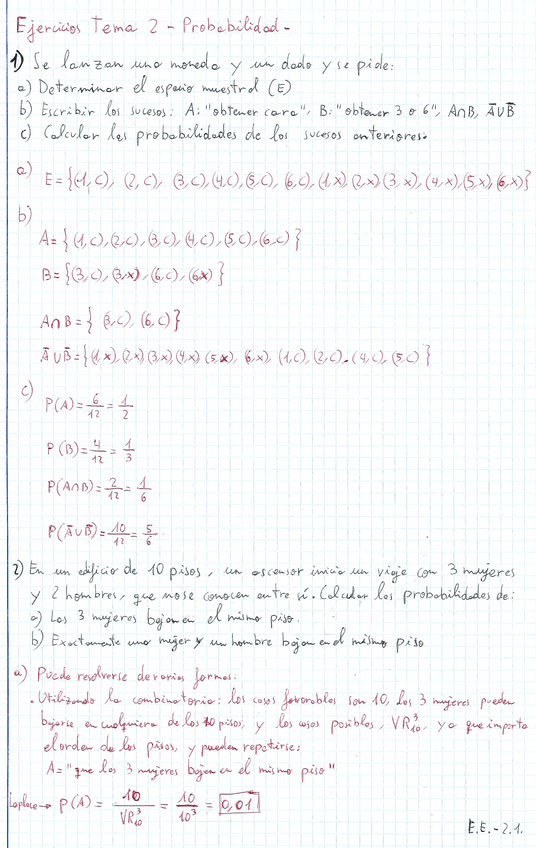 Ejercicios Tema 2 - Probabilidad -
1) Se lanzan una moneda y un dado y se pide:
a) Determinar el espacio muestral (E)
b) Escribir los sucesos: A: "obtener cara", B: "obtener 3 o 6", A∩B, A̅∪B̅
c) Calcular las probabilidades de los sucesos anteriores.
a) E = {(1,C), (2,C), (3,C), (4,C), (5,C), (6,C), (1,x), (2,x), (3,x), (4,x), (5,x), (6,x)}
b)
A = {(1,C), (2,C), (3,C), (4,C), (5,C), (6,C)}
B = {(3,C), (3,x), (6,C), (6,x)}
A∩B = {(3,C), (6,C)}
A̅∪B̅ = {(1,x), (2,x), (3,x), (4,x), (5,x), (6,x), (1,C), (2,C), (4,C), (5,C)}
c)
P(A) = 6/12 = 1/2
P(B) = 4/12 = 1/3
P(A∩B) = 2/12 = 1/6
P(A̅∪B̅) = 10/12 = 5/6
2) En un edificio de 10 pisos, un ascensor inicia un viaje con 3 mujeres
y 2 hombres, que no se conocen entre sí. Calcular las probabilidades de:
a) Las 3 mujeres bajan en el mismo piso.
b) Exactamente una mujer y un hombre bajan en el mismo piso
a) Puede resolverse de varias formas:
. Utilizando la combinatoria: los casos favorables son 10, las 3 mujeres pueden
bajarse en cualquiera de los 10 pisos, y los casos posibles, VR₁₀³, ya que importa
el orden de los pisos, y pueden repetirse:
A = "que las 3 mujeres bajen en el mismo piso"
Laplace → P(A) = 10/VR₁₀³ = 10/10³ = 0,01
E.E.-2.1.